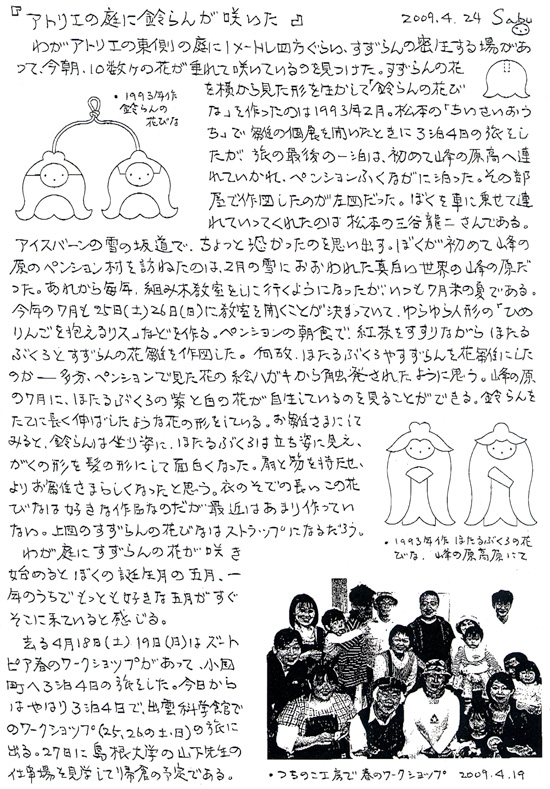 『アトリエの庭に鈴らんが咲いた』 2009.4.24 Sabu
わがアトリエの東側の庭に1メートル四方ぐらい、すずらんの密生する場があ
って、今朝、10数ヶの花が垂れて咲いているのを見つけた。すずらんの花
を横から見た形を生かして「鈴らんの花び
な」を作ったのは1993年2月。松本の「ちいさいおう
ち」で雛の個展を開いたときに3泊4日の旅をし
たが、旅の最後の一泊は、初めて峰の原高へ連
れていかれ、ペンションふくながに泊った。その部
屋で作図したのが左図だった。ぼくを車に乗せて連
れていってくれたのは松本の三谷龍二さんである。
アイスバーンの雪の坂道で、ちょっと恐かったのを思い出す。ぼくが初めて峰の
原のペンション村を訪ねたのは、2月の雪におおわれた真白い世界の峰の原だ
った。あれから毎年、組み木教室をしに行くようになったが、いつも7月末の夏である。
今年の7月も25日(土)26日(日)に教室を開くことが決まっていて、ゆらゆら人形の「ひめ
りんごを抱えるリス」などを作る。ペンションの朝食で、紅茶をすすりながらほたる
ぶくろとすずらんの花雛を作図した。何故、ほたるぶくろやすずらんを花雛にした
のか―多分、ペンションで見た花の絵ハガキから触発されたように思う。峰の原
の7月に、ほたるぶくろの紫と白の花が自生しているのを見ることができる。鈴らんを
たてに長く伸ばしたような花の形をしている。お雛さまにして
みると、鈴らんは坐り姿に、ほたるぶくろは立ち姿に見え、
がくの形を髪の形にして面白くなった。扇と笏を持たせ、
よりお雛さまらしくなったと思う。衣のそでの長いこの花
びなは好きな作品なのだが最近はあまり作ってい
ない。上図のすずらんの花びなはストラップになるだろう。
わが庭にすずらんの花が咲き
始めるとぼくの誕生月の五月、一
年のうちでもっとも好きな五月がすぐ
そこに来ていると感じる。
去る4月18日(土)19日(日)はズート
ピア春のワークショップがあって、小国
町へ3泊4日の旅をした。今日から
はやはり3泊4日で、出雲科学館で
のワークショップ(25,26の土・日)の旅に
出る。27日に島根大学の山下先生の
仕事場を見学して帰倉の予定である。
・1993年作
鈴らんの
花びな
・1993年作 ほたるぶくろの花
びな、峰の原高原にて
・つちのこ工房で春のワークショップ 2009.4.19